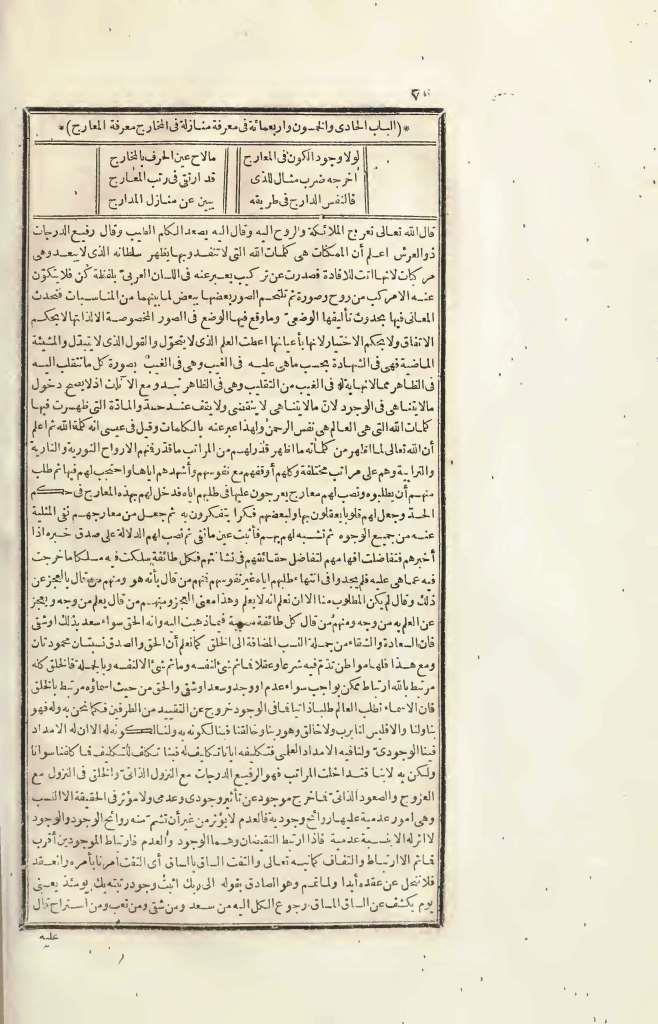 * (الباب الحادى والخمسون واربعمائة فى معرفة منازلة فى المخارج معرفة المعارج) *
لولا وجود الكون فى المعارج مالاح عين الحرف بالمخارج
أخرجه ضرب مثال للذى قد ارتقى فى رتب المعارج
فالنفس الدارج فى طريقه يبين عن منازل المدارج
قال الله تعالى تعرج الملائكة والروح اليه وقال اليه يصعد الكلم الطيب وقال رفيع الدرجات
ذو العرش اعلم أن الممكنات هى كلمات الله التى لا تنفد وبها يظهر سلطانه الذى لا يبعد وهى
مركبات لانها أتت للافادة فصدرت عن تركيب يعبر عنه فى اللسان العربى بلفظة كن فلا يتكوّن
عنه الا مركب من روح وصورة ثم تلتحم الصور بعضها ببعض لما بينهما من المناسبات فتحدث
المعانى فيها بحدوث تأليفها الوضعى وما وقع فيها الوضع فى الصور المخصوصة الا لذاتها لا بحكم
الاتفاق ولا بحكم الاختيار لانها بأعيانها اعطت العلم الذى لا يتحوّل والقول الذى لا يتبدّل والمشيئة
الماضية فهى فى الشهادة بحسب ما هى عليه فى الغيب وهى فى الغيب بصورة كل ما تتقلب اليه
فى الظاهر مما لا نهاية له فى الغيب من التقليب وهى فى الظاهر تبدو مع الآنات اذ لا يصح دخول
مالا يتناهى فى الوجود لان مالا يتناهى لا ينقضى ولا يقف عند حدّ والمادّة التى ظهرت فيها
كلمات الله التى هى العالم هى نفس الرحمن ولهذا عبر عنه بالكلمات وقيل فى عيسى انه كلمة الله ثم اعلم
أن الله تعالى لما اظهر من كلماته ما اظهر قدّر لهم من المراتب ما قدّر فمنهم الارواح النورية والنارية
والترابية وهم على مراتب مختلفة وكلهم أوقفهم مع نفوسهم وأشهدهم اياها واحتجب لهم فيها ثم طلب
منهم أن يطلبوه ونصب لهم معارج يعرجون عليها فى طلبهم اياه فدخل لهم بهذه المعارج فى حكم
الحدّ وجعل لهم قلوبا يعقلون بها ولبعضهم فكرا يتفكرون به ثم جعل من معارجهم نفى المثلية
عنه من جميع الوجوه ثم تشبه لهم بهم فأثبت عين ما نفى ثم نصب لهم الدلالة على صدق خبره اذا
أخبرهم فتفاضلت افهامهم لتفاضل حقائقهم فى نشأتهم فكل طائفة سلكت فيه مسلكا ما خرجت
فيه عما هى عليه فلم يجدوا فى انتهاء طلبهم اياه غير نفوسهم فمنهم من قال بأنه هو ومنهم من قال بالعجز عن
ذلك وقال لم يكن المطلوب منا الا ان نعلم انه لا يعلم وهذا معنى العجز ومنهم من قال يعلم من وجه ويعجز
عن العلم به من وجه ومنهم من قال كل طائفة مصيبة فيما ذهبت اليه وانه الحق سواء سعد بذلك أو شقى
فان السعادة والشقاء من جملة النسب المضافة الى الخلق كما نعلم أن الحق والصدق نسبتان محمودتان
ومع هذا فلهما مواطن تذم فيه شرعا وعقلا فما ثم شئ لنفسه وما ثم شئ الا لنفسه وبالجملة فالخلق كله
مرتبط بالله ارتباط ممكن بواجب سواء عدم او وجد وسعد او شقى والحق من حيث اسماؤه مرتبط بالخلق
فان الاسماء تطلب العالم طلبا ذاتيا فما فى الوجود خروج عن التقييد من الطرفين فكما نحن به وله فهو
بنا ولنا والا فليس لنا برب ولا خالق وهو ربنا وخالقنا فبنا لكونه به ولنا لكونه له الا ان له الامداد
فينا الوجودى ولنا فيه الامداد العلمى فتكليفه ايانا تكليف له فبنا تكلف للتكليف فما كلفنا سوانا
ولكن به لا بنا فتداخلت المراتب فهو الرفيع الدرجات مع النزول الذاتى والخلق فى النزول مع
العروج والصعود الذاتى فما خرج موجود عن تأثير وجودى وعدمى ولا مؤثر فى الحقيقة الا النسب
وهى امور عدمية عليها روائح وجودية فالعدم لا يؤثر من غير أن تشمّ منه روائح الوجود والوجود
لا اثر له الا بنسبة عدمية فاذا ارتبط النقيضان وهما الوجود والعدم فارتباط الموجودين أقرب
فما ثم الا ارتباط والتفاف كما نبه تعالى والتفت الساق بالساق أى التفت أمرنا بأمره وانعقد
فلا ينحل عن عقده أبدا ولما تمم وهو الصادق بقوله الى ربك اثبت وجود رتبته بك يومئذ يعنى
يوم يكشف عن الساق المساق رجوع الكل اليه من سعد ومن شقى ومن تعب ومن استراح قال
عليه